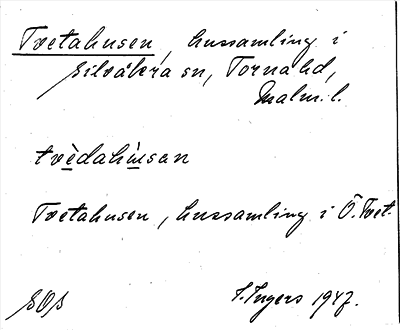 Tvetahusen, hussamling i
Silvåkra sn, Torna hd,
Malm. l.
tvèdahùsan
Tvetahusen, hussamling i Ö. Tvet.
SOS
I. Ingers 1947.